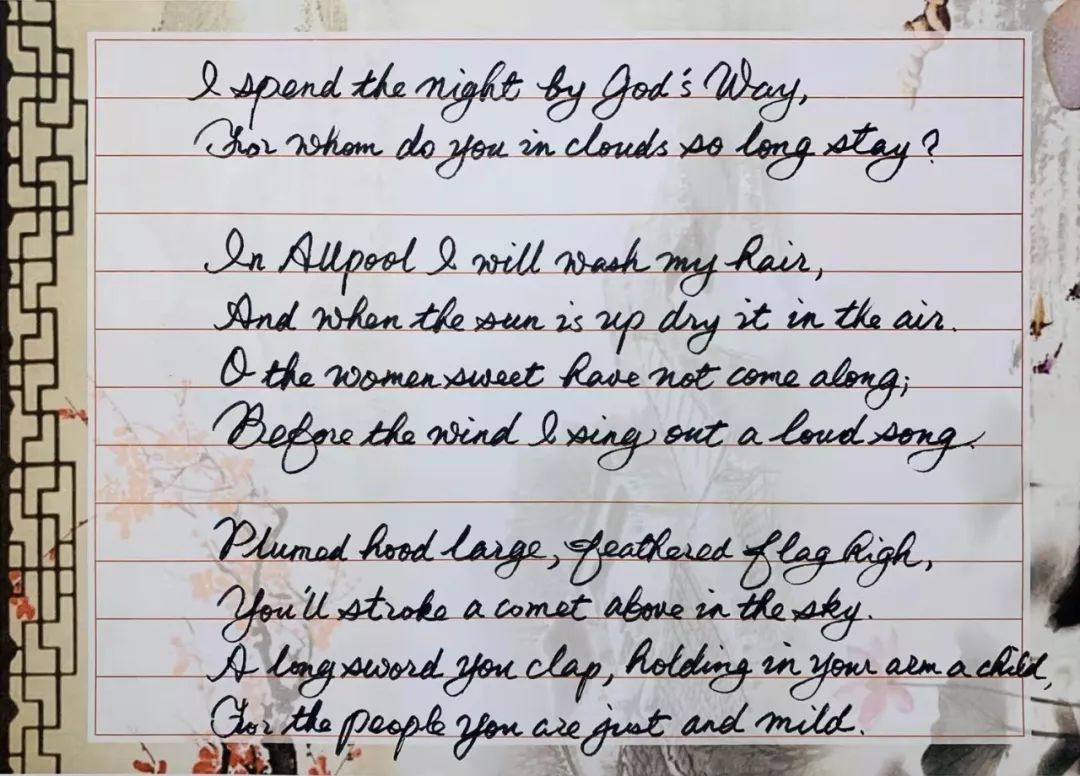 I spend the night by God's Way,
For whom do you in clouds so long stay?
In Allpool I will wash my hair,
And when the sun is up dry it in the air.
O the women sweet have not come along;
Before the wind I sing out a loud song.
Plumed hood large, feathered flag high,
You'll stroke a comet above in the sky.
A long sword you clap, holding in your arm a child,
For the people you are just and mild.